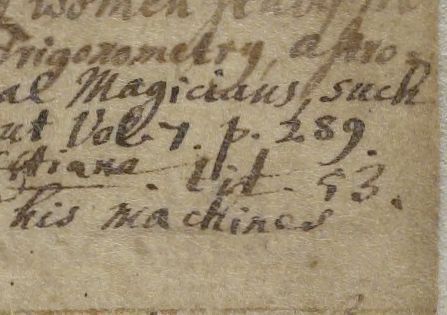 women
Trigonometry, astro-
al Magicians, such
ut Vol. 7. p. 289.
stiana. Lit. 53.
his machines